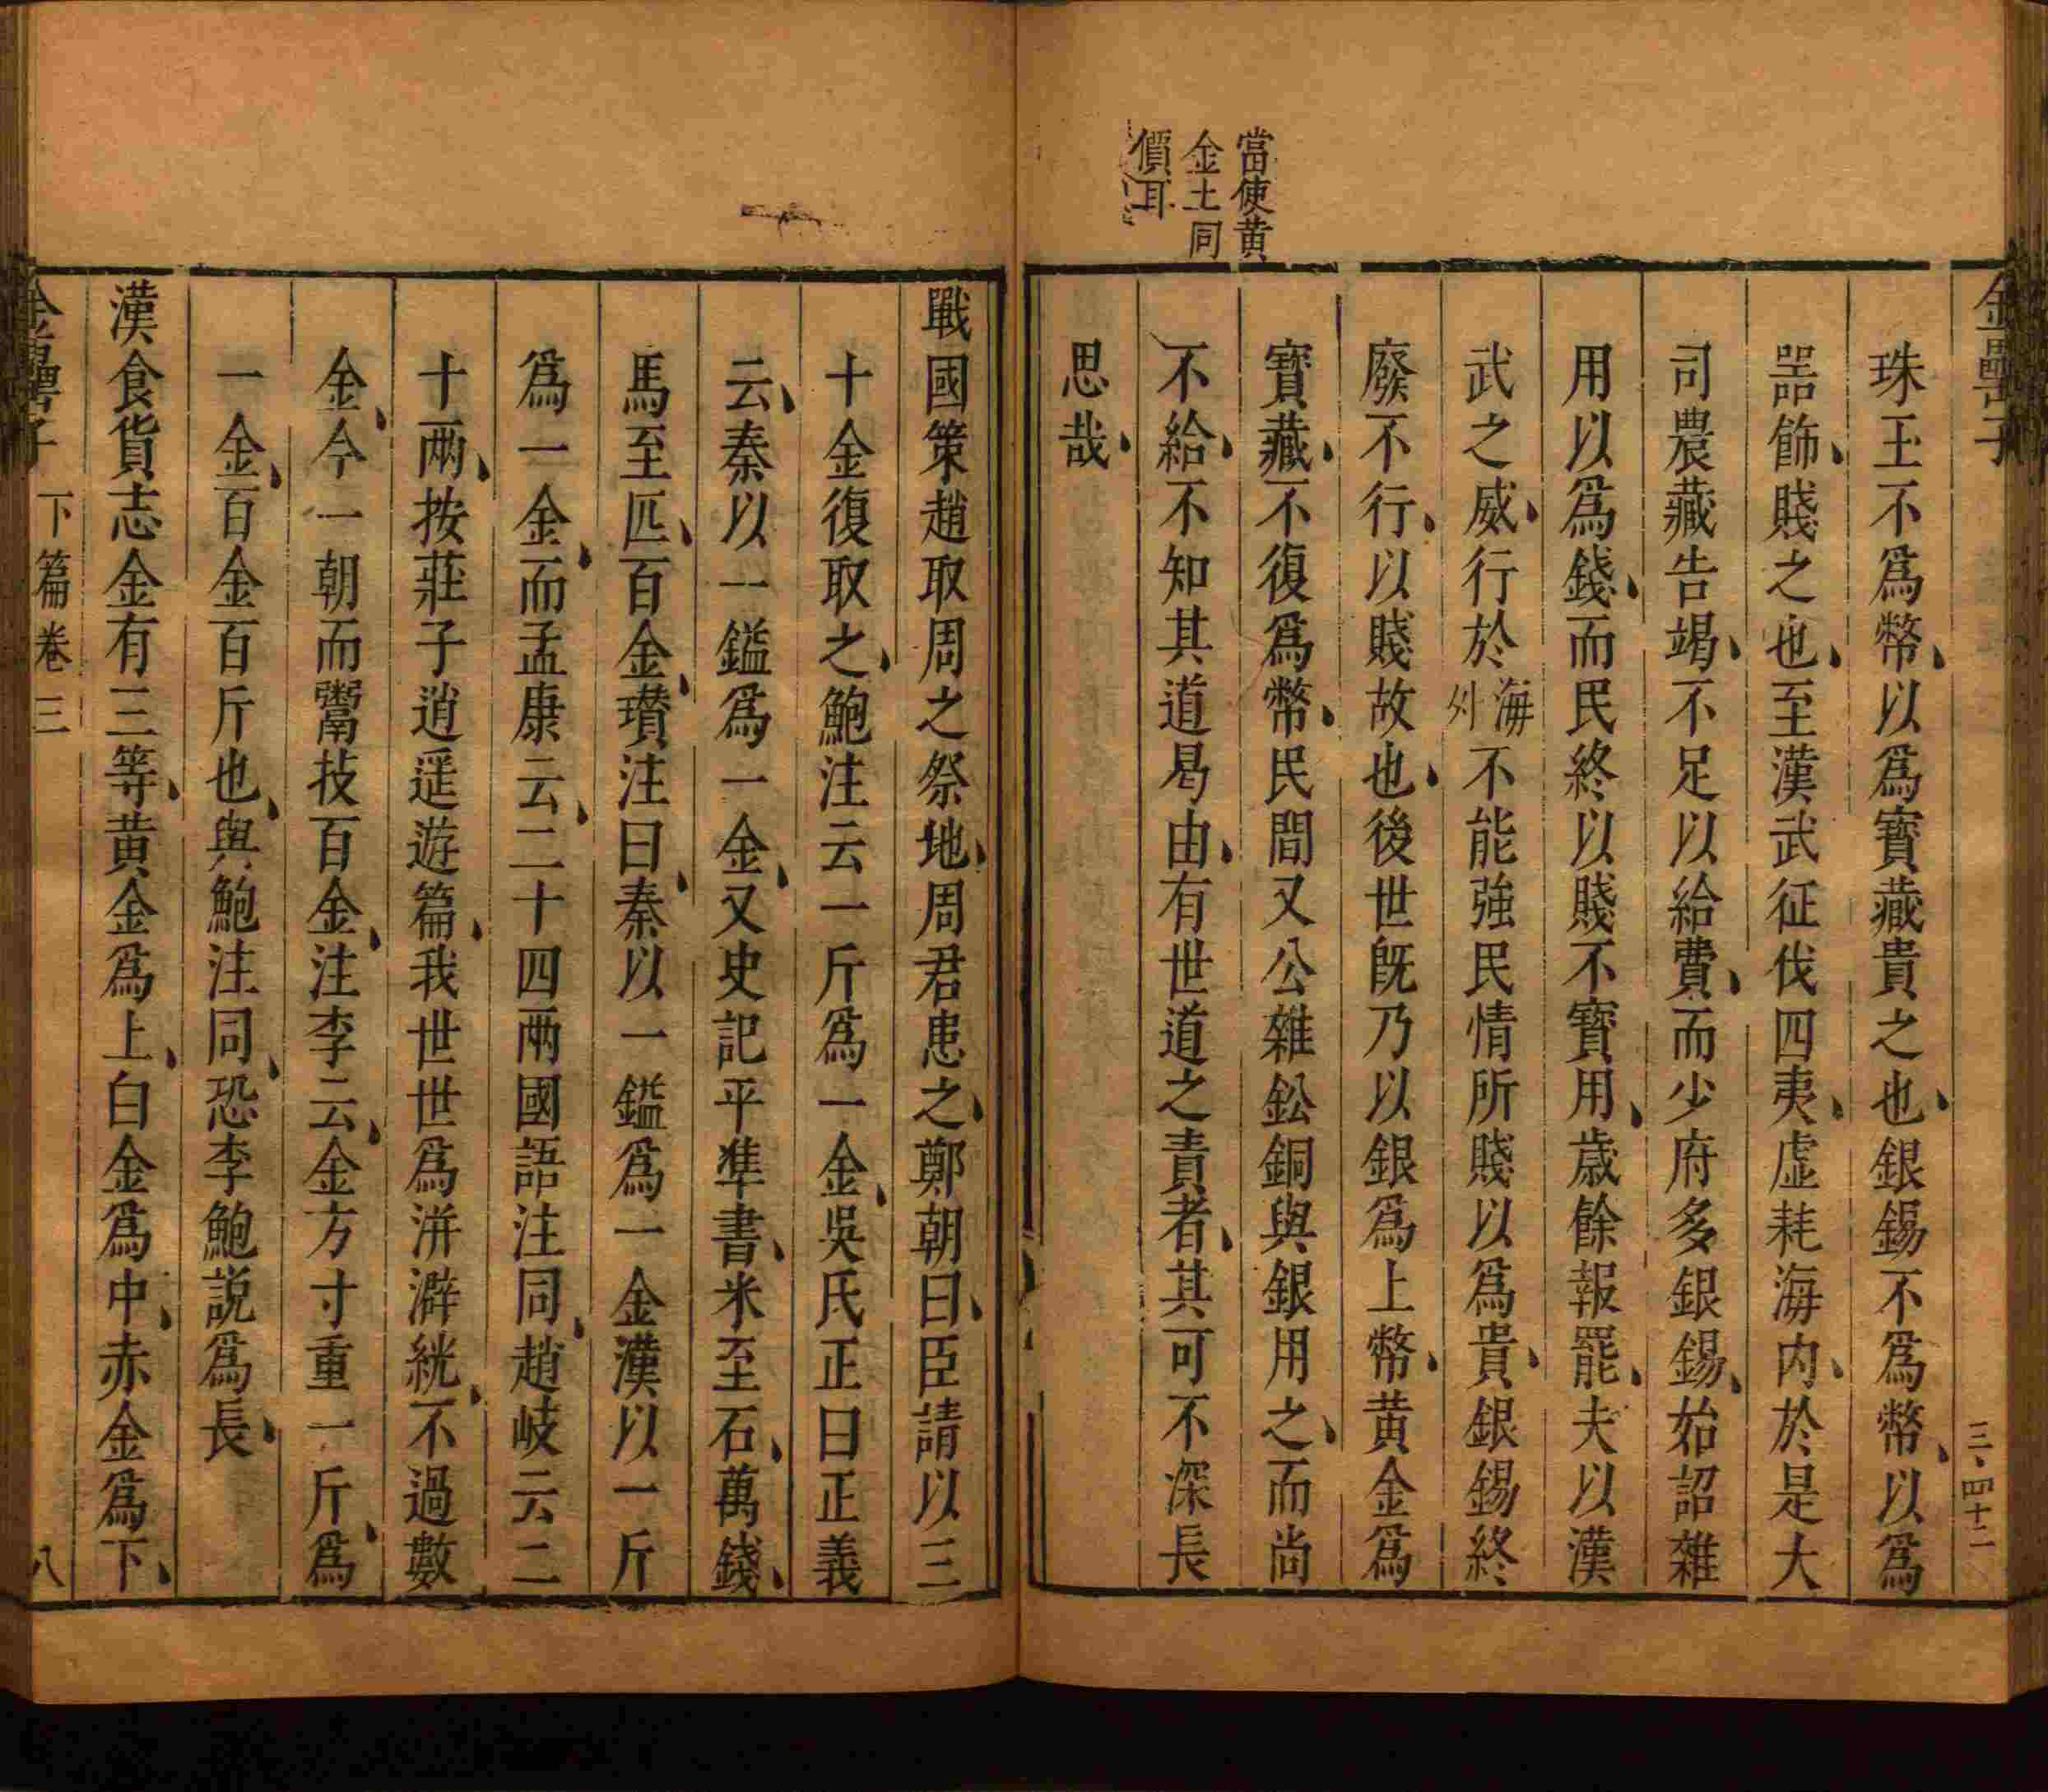 金罍子
三、四十二
當使黄
金土同
價耳
珠玉不爲幣、以爲寶藏貴之也、銀錫不爲幣、以爲
噐飾、賤之也、至漢武征伐四夷、虛耗海内、於是大
司農藏告竭、不足以給費、而少府多銀錫、始詔雜
用以爲錢、而民終以賤不寶用、歲餘報罷、夫以漢
武之威、行於海外不能強民情所賤以爲貴、銀錫終
廢不行、以賤故也、後世旣乃以銀爲上幣、黄金爲
寶藏、不復爲幣、民間又公雜鈆銅與銀用之、而尚
不給、不知其道曷由、有世道之責者、其可不深長
思哉、
戰國策趙取周之祭地、周君患之、鄭朝曰、臣請以三
十金復取之、鮑注云一斤爲一金、吳氏正曰正義
云、秦以一鎰爲一金、又史記平凖書、米至石、萬錢、
馬至匹、百金、瓚注曰、秦以一鎰爲一金漢以一斤
爲一金、而孟康云、二十四兩國語注同、趙岐云二
十兩、按莊子逍遥遊篇、我世世爲洴澼絖、不過數
金、今一朝而鬻技百金、注李云、金方寸重一斤、爲
一金、百金百斤也、與鮑注同、恐李鮑説爲長、
漢食貨志金有三等、黄金爲上、白金爲中、赤金爲下、
金罍子
下篇卷三
八